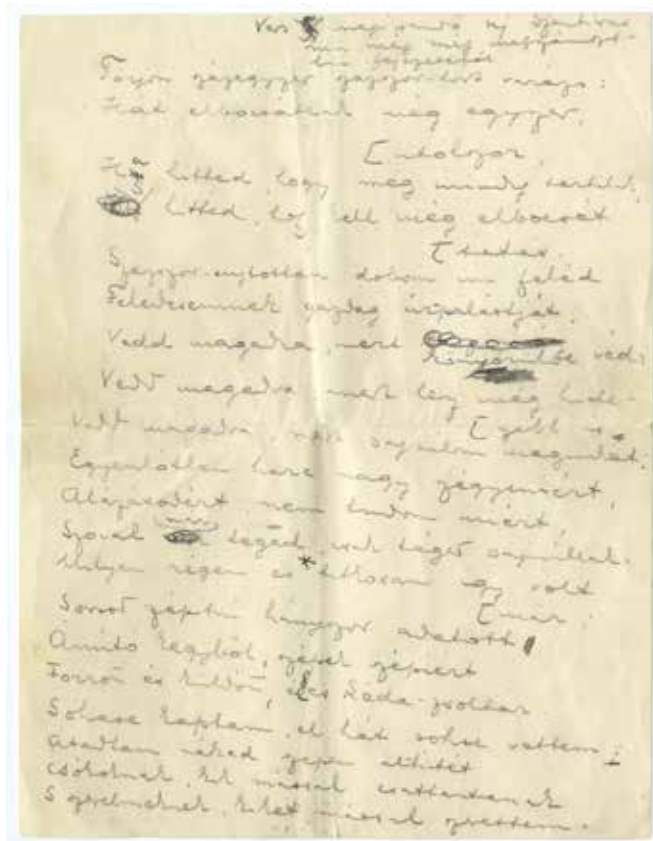 Törjön százegyszer százszor-tört varázs:
Hát elbocsátlak még egyszer,
[utolszor,
Ha hitted, hogy még mindig tartlak,
S hitted, hogy kell még elbocsát
[tatás.
Százszor-sujtottan dobom im feléd
Feledésemnek gazdag úr-palástját.
Vedd magadra, mert
Vedd magadra mert lesz még hide-
[gebb is,
Vedd magadra, mert sajnálom magunkat.
Egyenlőtlen harc nagy szégyeniért,
Alázásodért nem tudom miért,
Szóval már téged, csak téged sajnállak.
* Milyen régen és titkosan így volt
[már:
Sorsod szépitni hányszor adatott
Ámitó kegyből, szépek szépiért
Forrott és küldött, ékes Léda-zsoltár.
Sohase kaptam, el hát sohse vettem:
Átadtam néked szépen álhitét
Csókoknak, kik mással csattantanak
S szerelmeket, kiket mással szerettem.